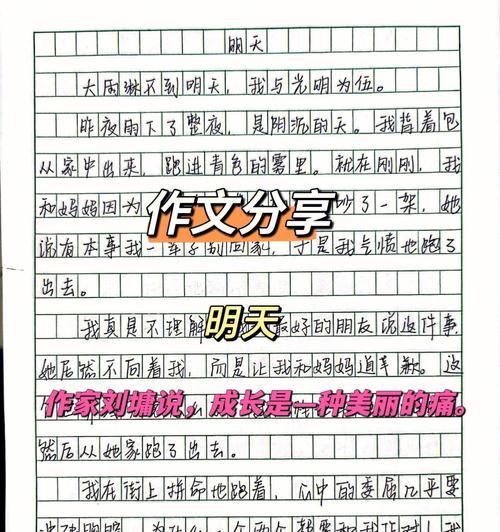 明天
大雨淋不到明天，我与光明为伍。
昨夜雨下了整夜，是阴沉的天。我背着包
从家中出来，跑进青色的雾里。就在刚刚，我
和妈妈因为
吵了一架，她
作文分享
说有本事我一辈子别回家，于是我气愤地跑了
出去。
我真是不理解
最好的朋友说这件事
明天
她居然不向着我，而是让我和妈妈道革歉。这
作家刘墉说，成长是一种美丽的痛。
然后从她家跑了出去。
我在街上拼命地跑着，心中的委屈几乎要